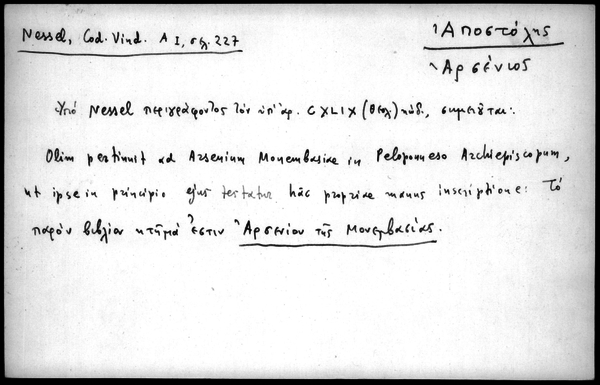 Nessel, Cod. Vind. A I, σελ. 227
Ἀποστόλης
Ἀρσένιος
Ὑπό Nessel περιγράφοντος τὸν ὑπ' ἀρ. CXLIX (θεολ) κώδ., σημειοῦται:
Olim pertinuit ad Arsenium Monembasiae in Peloponneso Archiepiscopum,
ut ipse in principio ejus testatur hâc propriae manus inscriptione: Τό
παρὸν βιβλίον κτῆμά ἐστιν Ἀρσενίου τῆς Μονεμβασίας.